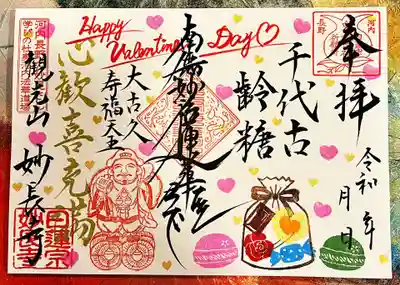 Happy Valentine's Day♡
河内
長野
奉拝
令和 年
月 日
千代古
齢糖
南無妙法蓮華経
大古久
寿福天玉
心歓喜充満
観光山 妙長寺
日蓮宗